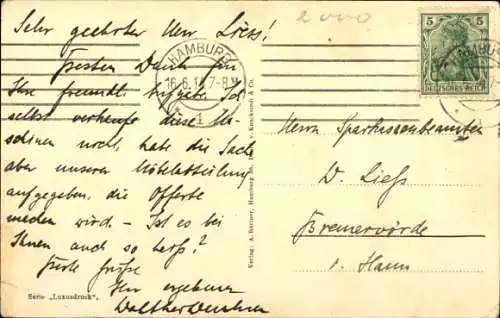 Sehr geehrter Herr Liess!
Besten Dank für
Ihre freundl.
selbst verkaufe diese
noch, habe die Sache
aber unserer Möbelabteilung
aufgegeben, die Offerte
machen wird. – Ist es bei
Ihnen auch so heiß?
Gruß
Ihr ergebener
2000
HAMBURG
16.6.1 7-8 N
1
5 5
DEUTSCHES REICH
HAMBURG
Herrn Sparkassenbeamten
D. Liess
Bremervörde
i. Hann
Serie „Luxusdruck“,
Verlag: A. Büttner, Hamburg